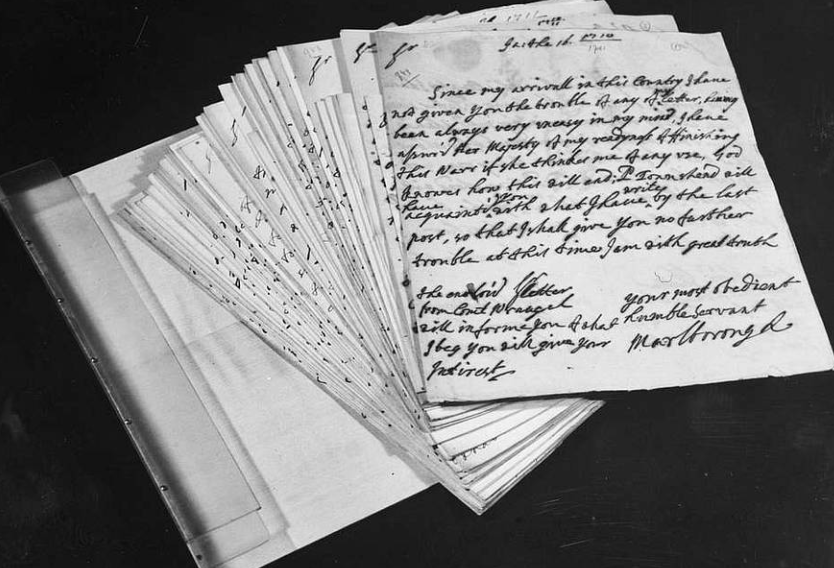 Ja: the 16 1710
1711
Since my arrivall in this Country I have
not given You the trouble of any of my letter, having
been always very uneasy in my mind, I have
assur'd Her Majesty of my readyness of ffinishing
this Warr if she thinkes me of any vse, God
knowes how this will end; Ld Townshend will
have acquainted you with what I have write by the last
post, so that I shall give You no farther
trouble at this time I am with great truth
your most obedient
humble servant
Marlborough
the enclos'd letter
from Count Wrangel
will informe you of what
I beg you will give your
Intirest